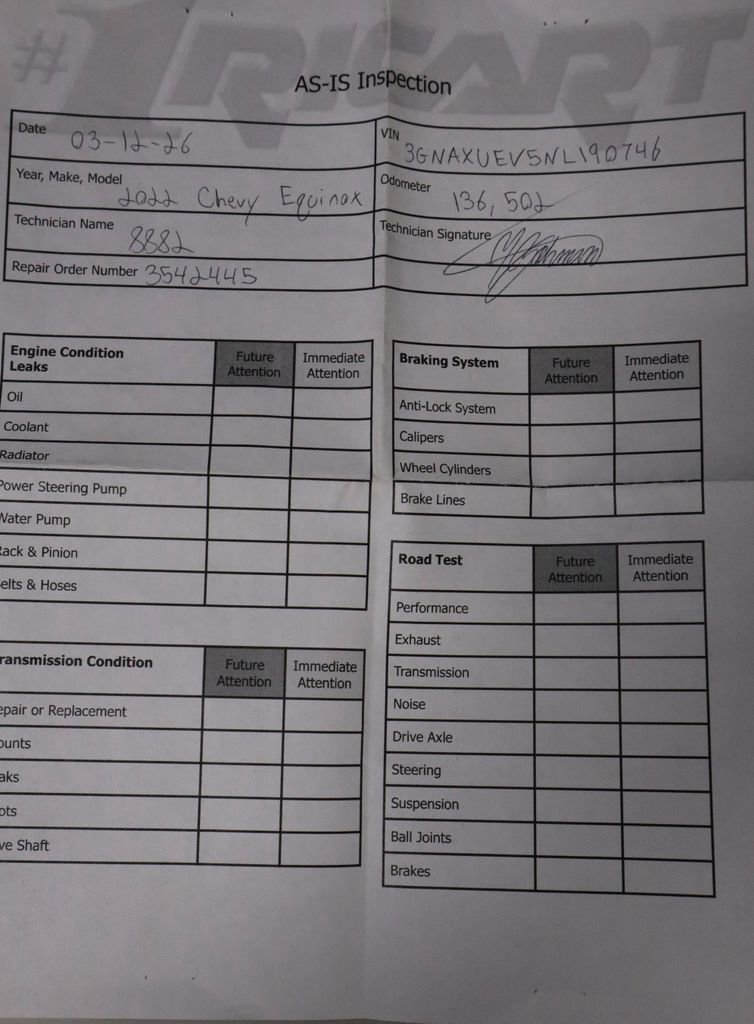 #1 RICART
AS-IS Inspection
Date 03-12-26
VIN 3GNAXUEV5NL190746
Year, Make, Model 2022 Chevy Equinox
Odometer 136,502
Technician Name 8882
Technician Signature
Repair Order Number 3542445
Engine Condition Leaks Future Attention Immediate Attention
Oil
Coolant
Radiator
Power Steering Pump
Water Pump
Rack & Pinion
elts & Hoses
ransmission Condition Future Attention Immediate Attention
epair or Replacement
ounts
aks
ots
ve Shaft
Braking System Future Attention Immediate Attention
Anti-Lock System
Calipers
Wheel Cylinders
Brake Lines
Road Test Future Attention Immediate Attention
Performance
Exhaust
Transmission
Noise
Drive Axle
Steering
Suspension
Ball Joints
Brakes